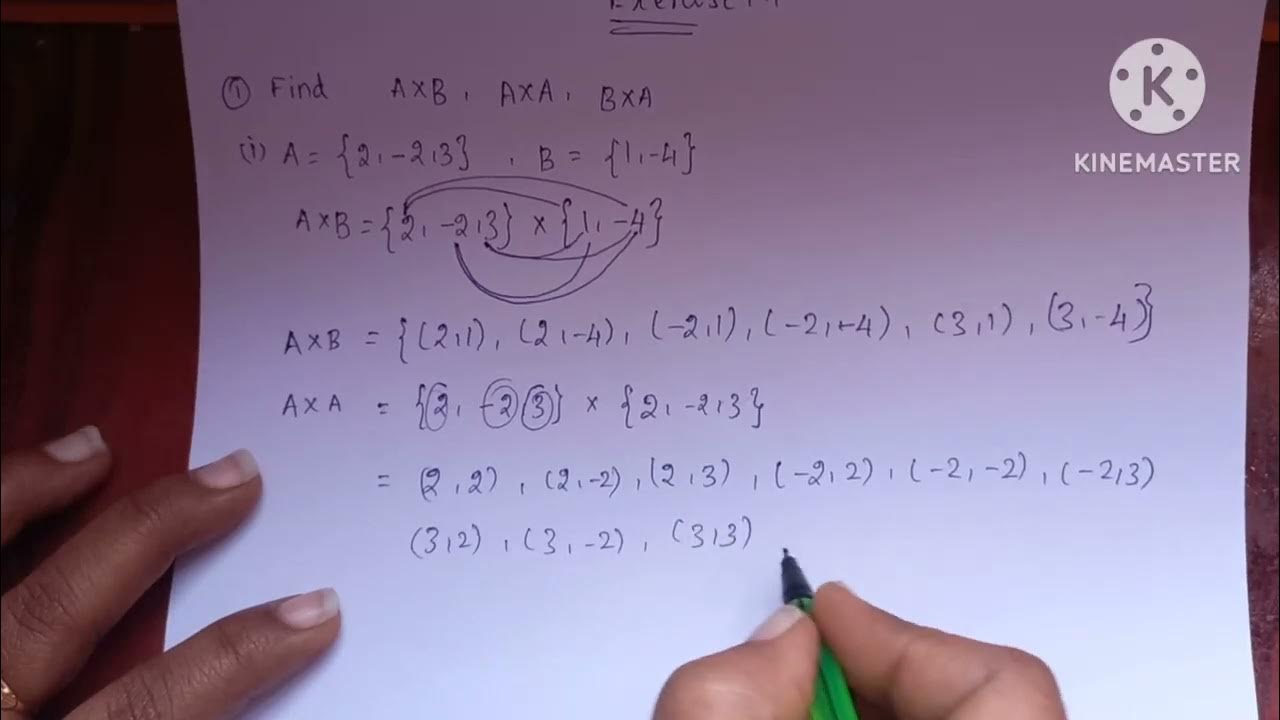 ① Find A×B, A×A, B×A
(i) A = {2, -2, 3}, B = {1, -4}
A×B = {2, -2, 3} × {1, -4}
A×B = {(2,1), (2,-4), (-2,1), (-2,-4), (3,1), (3,-4)}
A×A = {2, -2 3} × {2, -2, 3}
= (2,2), (2,-2), (2,3), (-2,2), (-2,-2), (-2,3)
(3,2), (3,-2), (3,3)
K
KINEMASTER